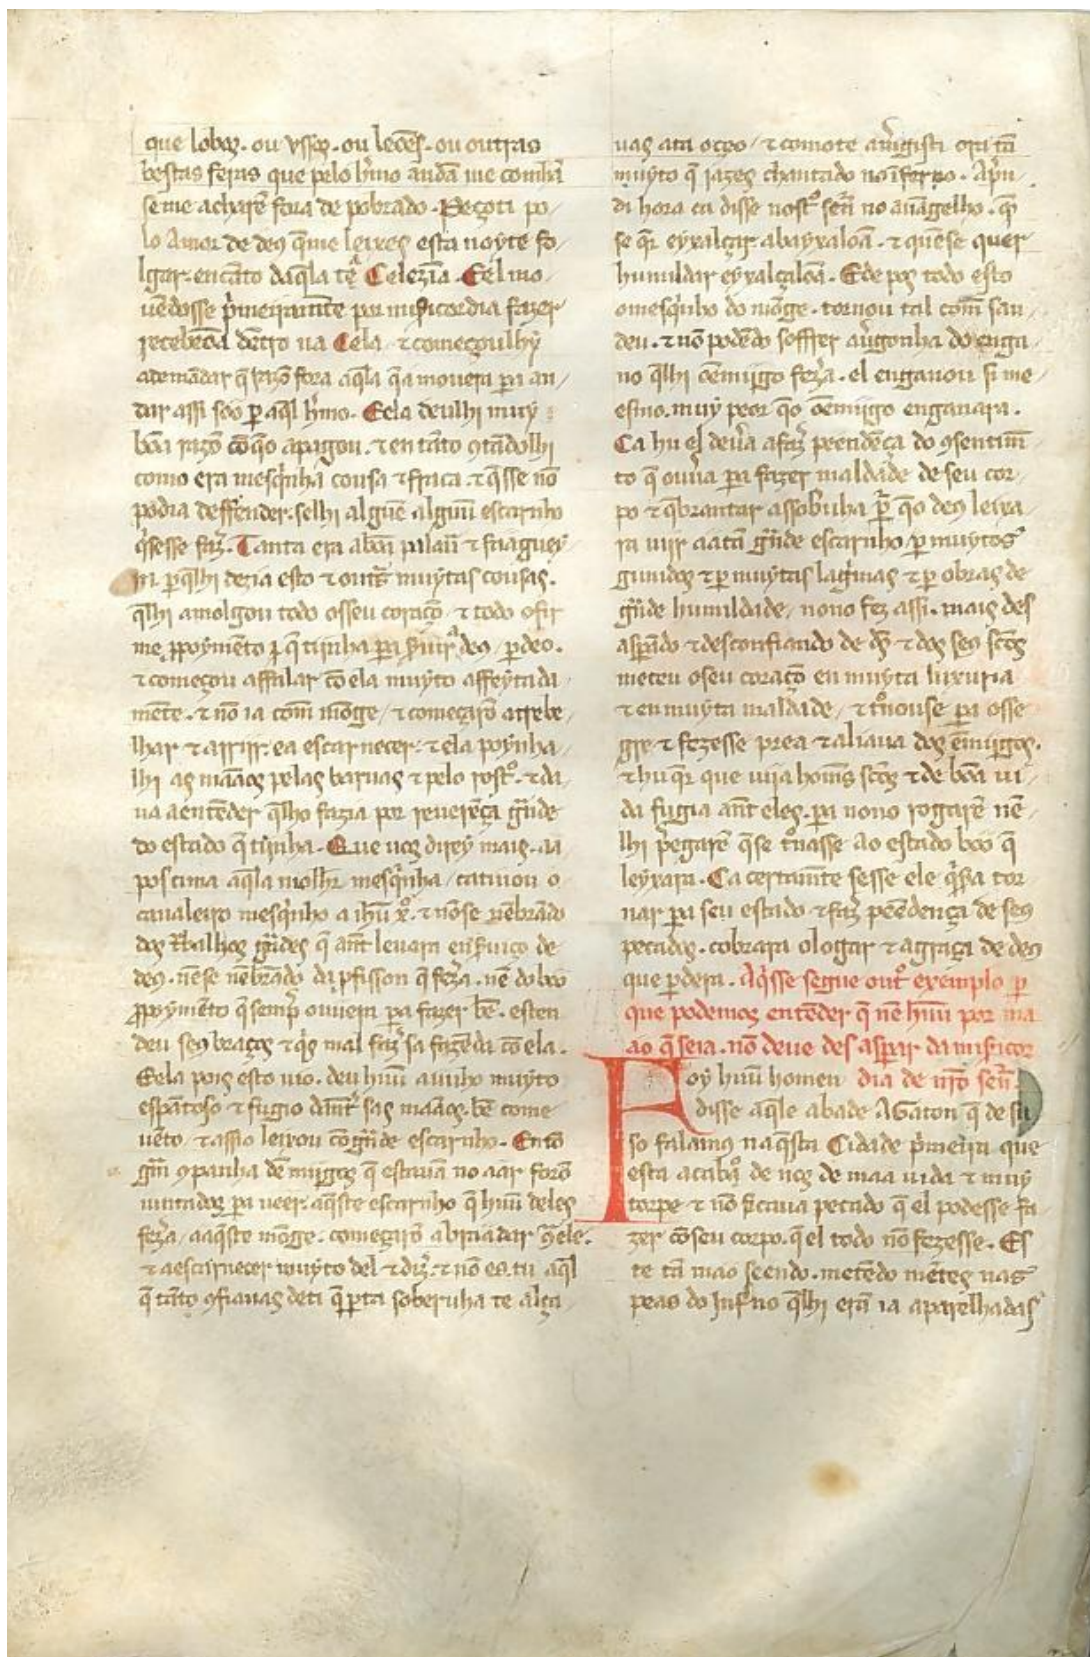 que lobos. ou vssos. ou leoẽs. ou outras
bestas feras que pelo h̃mo andã me comhã
se me acharẽ fora de pobrado. Peçoti po
lo amor de deꝯ q̃me leixes esta noyte fo
lgar. encãto daq̃la tẽ Celezĩa. E el mo
uẽdosse p̃meiramẽte por misicordia fazer
recebeoa dẽtro na Cela ⁊ começoulhy
ademãdar q̃ razõ fora aq̃la q̃a mouera pa an
dar assi soo ꝑ aq̃l h̃mo. E ela deulhi muy
bõa razõ cõ qo apagou. ⁊ en tãto ꝯtãdolhi
como era mesq̃nha cousa ⁊ fraca. ⁊ q̃sse nõ
podia deffender. selhi alguẽ alguũ escarnho
q̃sesse faz̃. Tanta era abõa palaũ ⁊ fraaguey
ra ꝑq̃lhi dezia esto ⁊ out̃s muytas cousas.
q̃lhi amolgou todo osseu coraçõ ⁊ todo ofir
me ꝓpoymẽto q̃ tijnha pa s̃uir a deꝯ ꝑdeo.
⁊ começou affalar cõ ela muyto affeytada
mẽte. ⁊ nõ ia com̃ mõge ⁊ começarõ atrebe
lhar ⁊ arrijr. ea escarnecer. ⁊ ela poynha
lhi as maãos pelas baruas ⁊ pelo rosto. ⁊ da
ua aentẽder q̃lho fazia por reuerẽça g̃nde
do estado q̃ tijnha. Que uos direy mais. aa
postima aq̃la molh̃r mesq̃nha catiuou o
caualeiro mesq̃nho a ih̃u x̃o. ⁊ nõse nẽbrãdo
dos t̃balhos g̃ndes q̃ ant̃ leuara en s̃uiço de
deꝯ. nẽse nẽbrãdo da ꝓfisson q̃ feza. nẽ do boo
ꝓpoymẽto q̃ semp̃ ouuera pa fazer bẽ. esten
deu seꝯ braços ⁊ q̃s mal faz̃ sa fazẽda cõ ela.
E ela pois esto uio. deu huũ auuho muyto
espãtoso ⁊ fugio dãnt̃ sas maãos. bẽ come
uẽto. ⁊ assio leixou cõ g̃nde escarnho. Entõ
g̃m ꝯpanha dẽmijgos q̃ estauã no aar forõ
iuntados pa ueer. aq̃ste escarnho q̃ huũ deles
feza. aaq̃ste mõge. começarõ abraadar s̃ ele.
⁊ aescarnecer muyto del ⁊ diz̃. ⁊ nõ es. tu aq̃l
q̃ tãto ꝯfiauas deti q̃ ꝑ ta soberuha te alça
uas ata oçeo. ⁊ comote am̃gisti ora tã
muyto q̃ iazes chantado no ĩferno. Ap̃n
di hora ca disse nosto señ no auãgelho. q̃
se q̃r eyxalçar abayxaloã. ⁊ quense quer
humildar eyxalçaloã. E de pos todo esto
omesq̃nho do mõge. tornou tal com̃ san
deu. ⁊ nõ podẽdo soffrer aug̃onha do enga
no q̃lhi oẽmijgo fez̃a. el enganou si me
esmo. muy peor q̃o oẽmijgo enganara.
Ca hu el deuẽa afaz̃ peẽdẽça do ꝯsentim̃
to q̃ ouũa pa fazer maldade de seu cor
po ⁊ q̃brantar assob̃uha ꝑ qo deꝯ leixa
ra uijr aatã g̃nde escarnho ꝑ muytos
gimidos ⁊ ꝑ muytas lag̃mas ⁊ ꝑ obras de
g̃nde humildade. nono fez assi. mais des
asꝑado ⁊ desconfiando de ds̃ ⁊ dos seꝯ sc̃os
meteu oseu coraçõ en muyta luxuria
⁊ en muyta maldade. ⁊ t̃nouse pa osse
gre ⁊ fezesse prea ⁊ aliaua dos ẽmijgos.
⁊ huq̃r que uija hom̃s sc̃os ⁊ de bõa ui
da fugia ant̃ eles. pa nono rogarẽ nẽ
lhi p̃egarẽ q̃se t̃nasse ao estado boo q̃
leyxara. Ca certam̃te sesse ele q̃s̃ra tor
nar pa seu estado ⁊ faz̃ peẽdença de seꝯ
pecados. cobrara ologar ⁊ agraça de deꝯ
que ꝑdera. Aq̃sse segue outo exẽmplo ꝑ
que podemos entẽder q̃ nẽ huũ por ma
ao q̃ seia. nõ deue des asꝑar da misicor
Foy huũ homen dia de nr̃o señ.
disse aq̃le abade AGaton q̃ de su
so falamꝯ naq̃sta Cidade p̃meira que
esta acabo de nos de maa uida ⁊ muy
torpe ⁊ nõ ficaua pecado q̃ el podesse fa
zer cõseu corpo. q̃ el todo nõ fezesse. Es
te tã mao seendo. metẽdo mẽtes nas
peas do Inf̃no q̃lhi erã ia aparelhadas